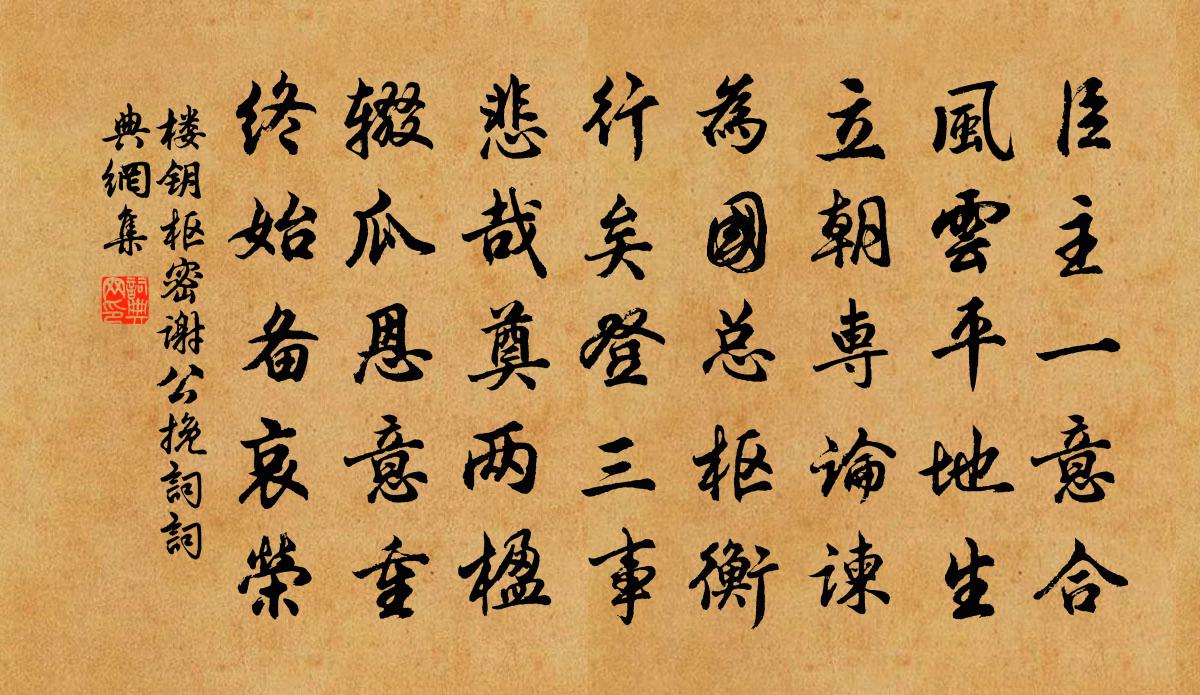 臣主一意合
風雲平地生
立朝専論諫
為國总枢衡
行矣登三事
悲哉奠两楹
辍瓜恩意重
终始备哀榮
楼钥枢密谢公挽詞詞
典網集
詞典网印